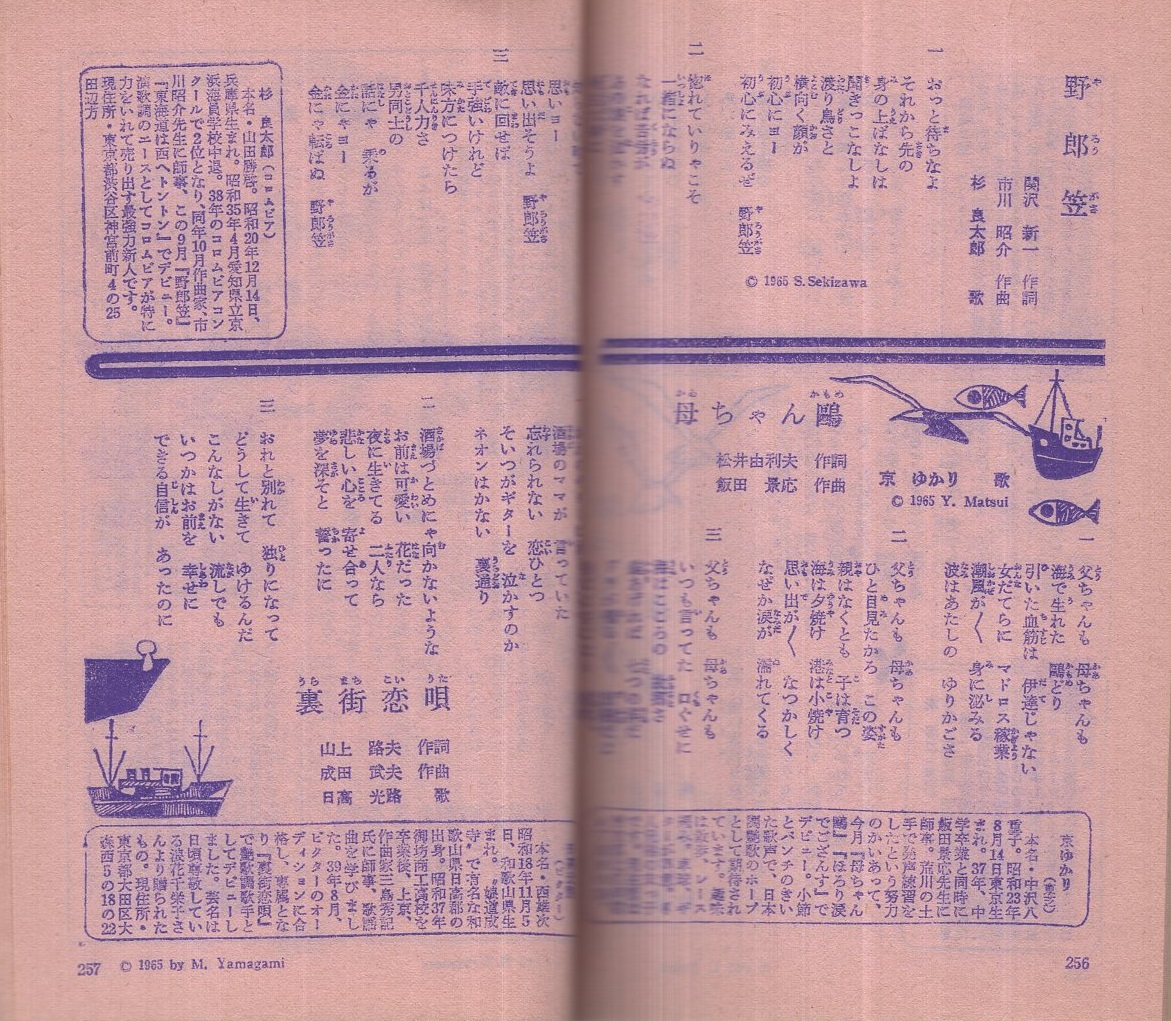 野郎笠
関沢 新一 作詞
市川 昭介 作曲
杉 良太郎 歌
一
おっと待ちなよ
それから先の
身の上ばなしは
聞きっこなしよ
渡り鳥さと
横向く顔が
初心にヨー
初心にみえるぜ 野郎笠
© 1965 S.Sekizawa
二
惚れていりゃこそ
一緒にならぬ
三
思いヨー
思い出そうよ 野郎笠
敵に回せば
手強いけれど
味方につけたら
千人力さ
男同士の
話にゃ 乗るが
金にヨー
金にゃ転ばぬ 野郎笠
杉 良太郎(コロムビア)
本名・山田勝啓。昭和20年12月14日、
兵庫県生まれ。昭和35年4月愛知県立京
浜海員学校中退。38年のコロムビアコン
クールで2位となり、同年10月作曲家、市
川昭介先生に師事、この9月『野郎笠』
『東海道は西へトントン』でデビュー。
演歌調のニースとしてコロムビアが特に
力をいれて売り出す最強力新人です。
現住所・東京都渋谷区神宮前町4の25
田辺方
母ちゃん鷗
松井由利夫 作詞
飯田 景応 作曲
京 ゆかり 歌
© 1965 Y. Matsui
一
父ちゃんも 母ちゃんも
海で生れた 鷗どり
引いた血筋は 伊達じゃない
女だてらに マドロス稼業
潮風が〱 身に泌みる
波はあたしの ゆりかごさ
二
父ちゃんも 母ちゃんも
ひと目見たかろ この姿
親はなくとも 子は育つ
海は夕焼け 港は小焼け
思い出が〱 なつかしく
なぜか涙が 濡れてくる
三
父ちゃんも 母ちゃんも
いつも言ってた 口ぐせに
海はこころの
京ゆかり
本名・中沢八
重子。昭和23年
8月14日東京生
まれ。37年、中
学卒業と同時に
飯田景応先生に
師事。荒川の土
手で発声練習を
したという努力
のかいあって、
今月『母ちゃん
鷗』『ほろり涙
でござんす』で
デビュー。小節
とパンチのきい
た歌声で、日本
調艶歌のホープ
として期待され
ています。趣味
256
裏街恋唄
山上 路夫 作詞
成田 武夫 作曲
日高 光路 歌
酒場のママが 言っていた
忘れられない 恋ひとつ
そいつがギターを 泣かすのか
ネオンはかない 裏通り
二
酒場づとめにゃ向かないような
お前は可愛い 花だった
夜に生きてる 二人なら
悲しい心を 寄せ合って
夢を探そと 誓ったに
三
おれと別れて 独りになって
どうして生きて ゆけるんだ
こんなしがない 流しでも
いつかはお前を 幸せに
できる自信が あったのに
本名・西雄次
昭和18年11月5
日、和歌山県生
まれ。〝娘道成
寺〟で有名な和
歌山県日高郡の
出身。昭和37年
御坊商工高校を
卒業後、上京、
作曲家三島秀記
氏に師事、歌謡
曲を学びまし
た。39年8月、
ビクターのオー
ディションに合
格し、専属とな
り『裏街恋唄』
で艶歌調歌手と
してデビューし
ました。芸名は
日頃尊敬してい
る浪花千栄子さ
んより贈られた
もの。現住所・
東京都大田区大
森西5の18の22
257 © 1965 by M. Yamagami